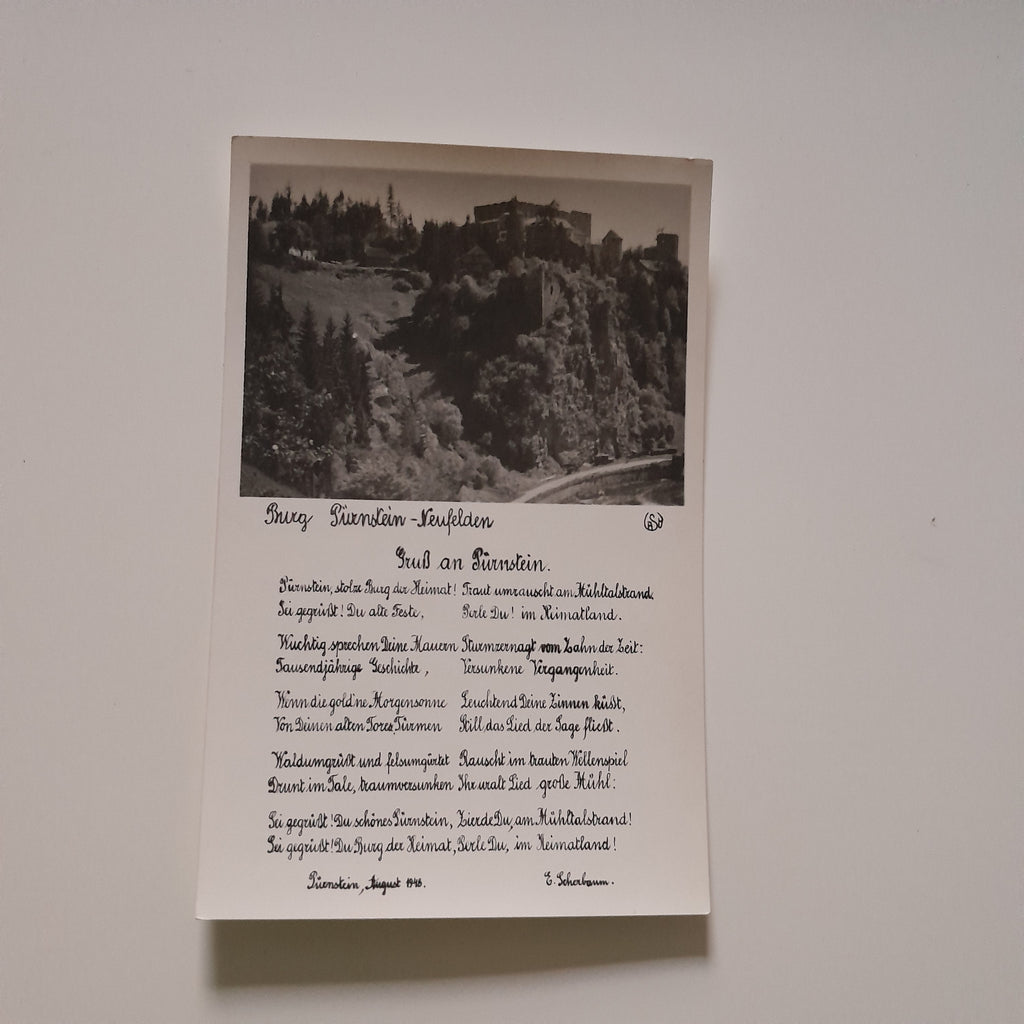 Burg Pürnstein-Neufelden
Gruß an Pürnstein.
Pürnstein, stolze Burg der Heimat! Traut umrauscht am Mühltalstrand,
Sei gegrüßt! Du alte Feste, Perle Du! im Heimatland.
Wuchtig sprechen Deine Mauern Sturmzernagt vom Zahn der Zeit:
Tausendjährige Geschichte, Versunkene Vergangenheit.
Wenn die gold'ne Morgensonne Leuchtend Deine Zinnen küßt,
Von Deinen alten Tores Türmen Still, das Lied der Sage fließt.
Waldumgrüßt und felsumgürtet Rauscht im trauten Wellenspiel
Drunt im Tale, traumversunken Ihr uralt Lied große Mühl:
Sei gegrüßt! Du schönes Pürnstein, Zierde Du, am Mühltalstrand!
Sei gegrüßt! Du Burg der Heimat, Perle Du, im Heimatland!
Pürnstein, August 194 E. Scherbaum.